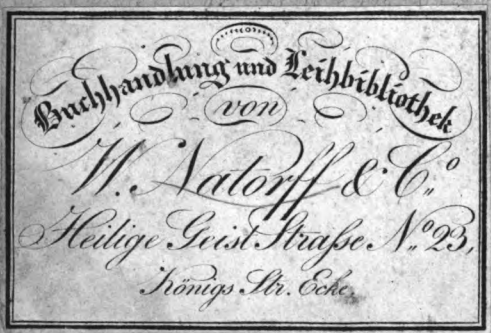 Buchhandlung und Leihbibliothek
von
W. Natorff & C.º
Heilige Geist Straße N.º 23,
Königs Str. Ecke.